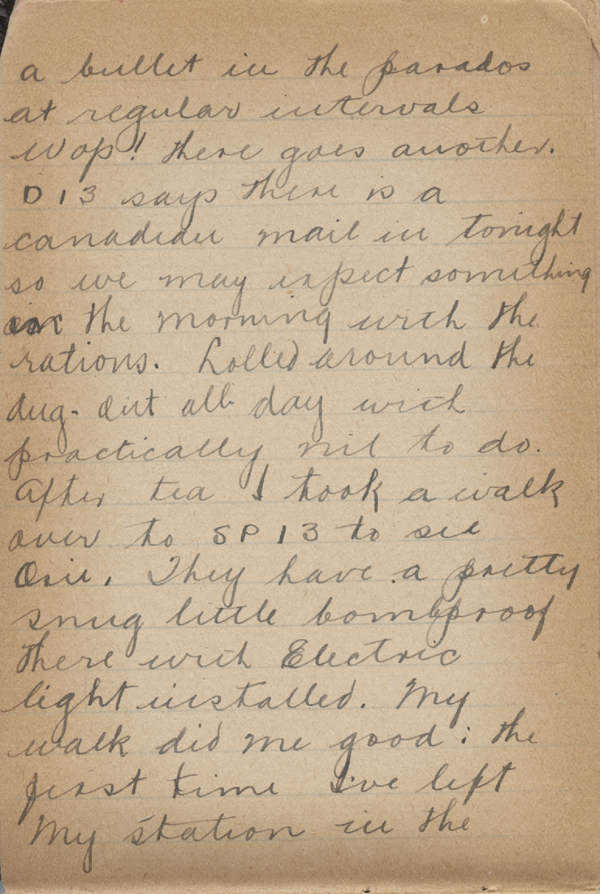 a bullet in the parados
at regular intervals
Wop! there goes another.
D 13 says there is a
canadian mail in tonight
so we may expect something
in the morning with the
rations. Lolled around the
dug-out all day with
practically nil to do.
After tea I took a walk
over to SP 13 to see
They have a pretty
snug little bombproof
there with Electric
light installed. My
walk did me good: the
first time I've left
My station in the